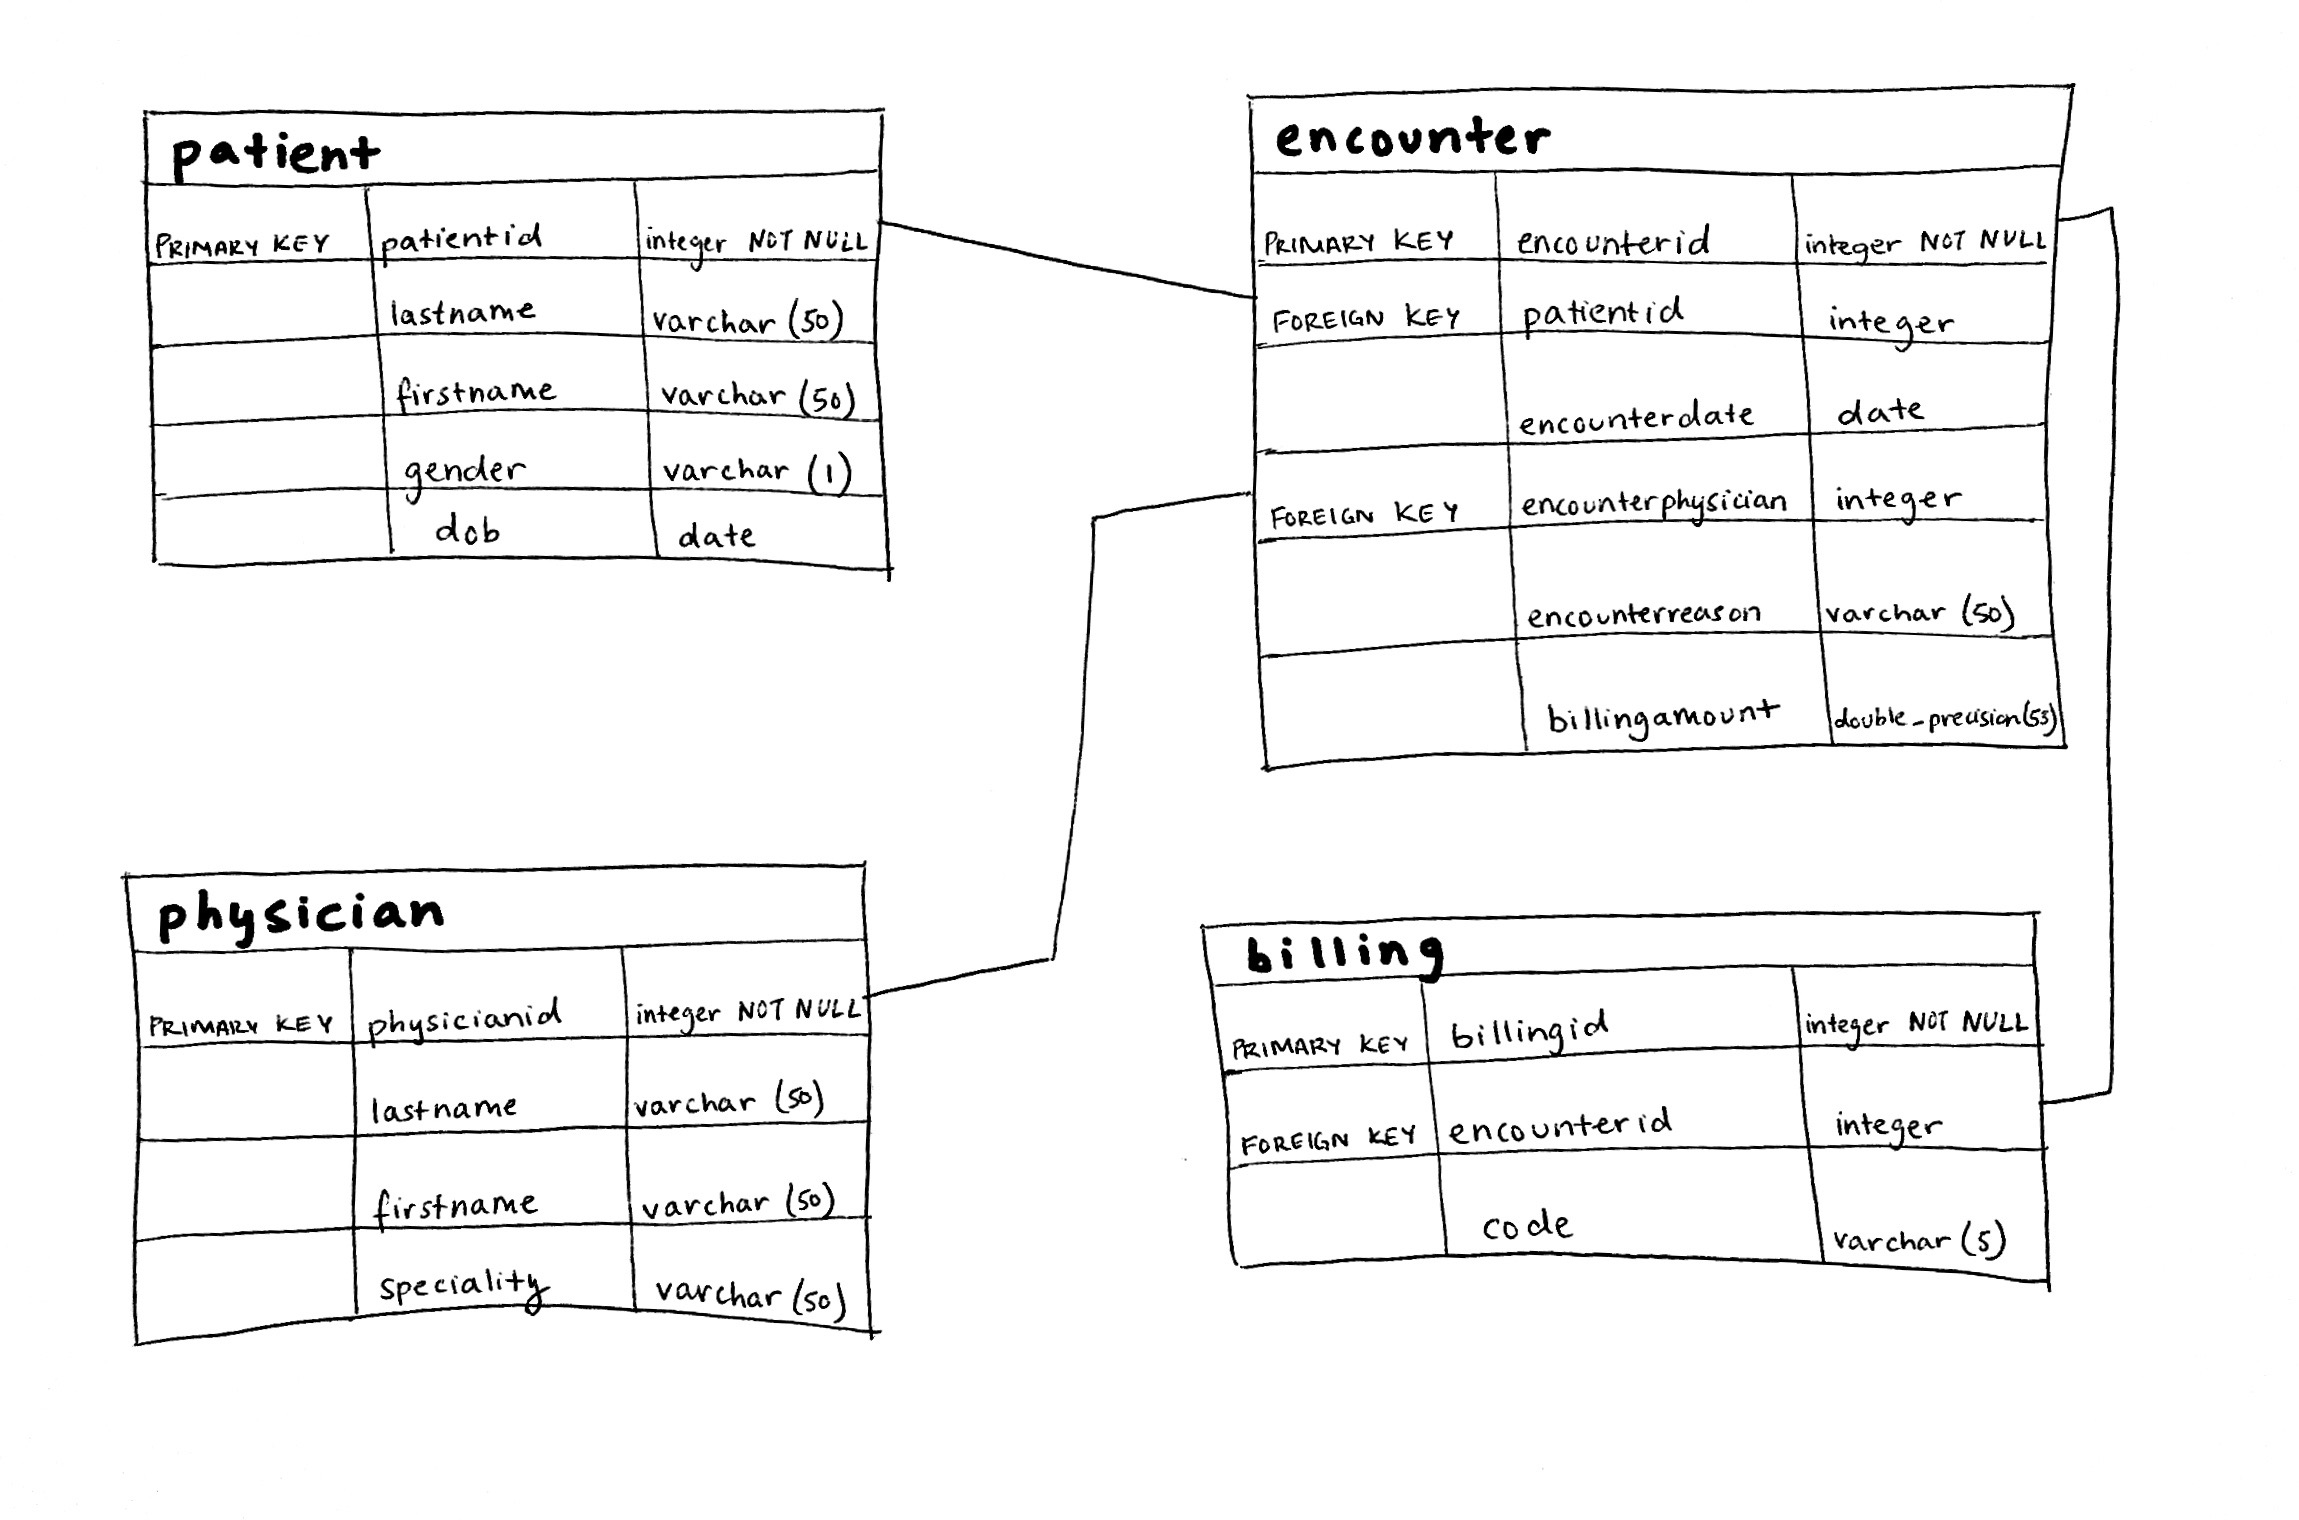 patient
PRIMARY KEY patientid integer NOT NULL
lastname varchar (50)
firstname varchar (50)
gender varchar (1)
dob date
encounter
PRIMARY KEY encounterid integer NOT NULL
FOREIGN KEY patientid integer
encounterdate date
FOREIGN KEY encounterphysician integer
encounterreason varchar (50)
billingamount double_precision(53)
physician
PRIMARY KEY physicianid integer NOT NULL
lastname varchar (50)
firstname varchar (50)
speciality varchar (50)
billing
PRIMARY KEY billingid integer NOT NULL
FOREIGN KEY encounterid integer
code varchar (5)